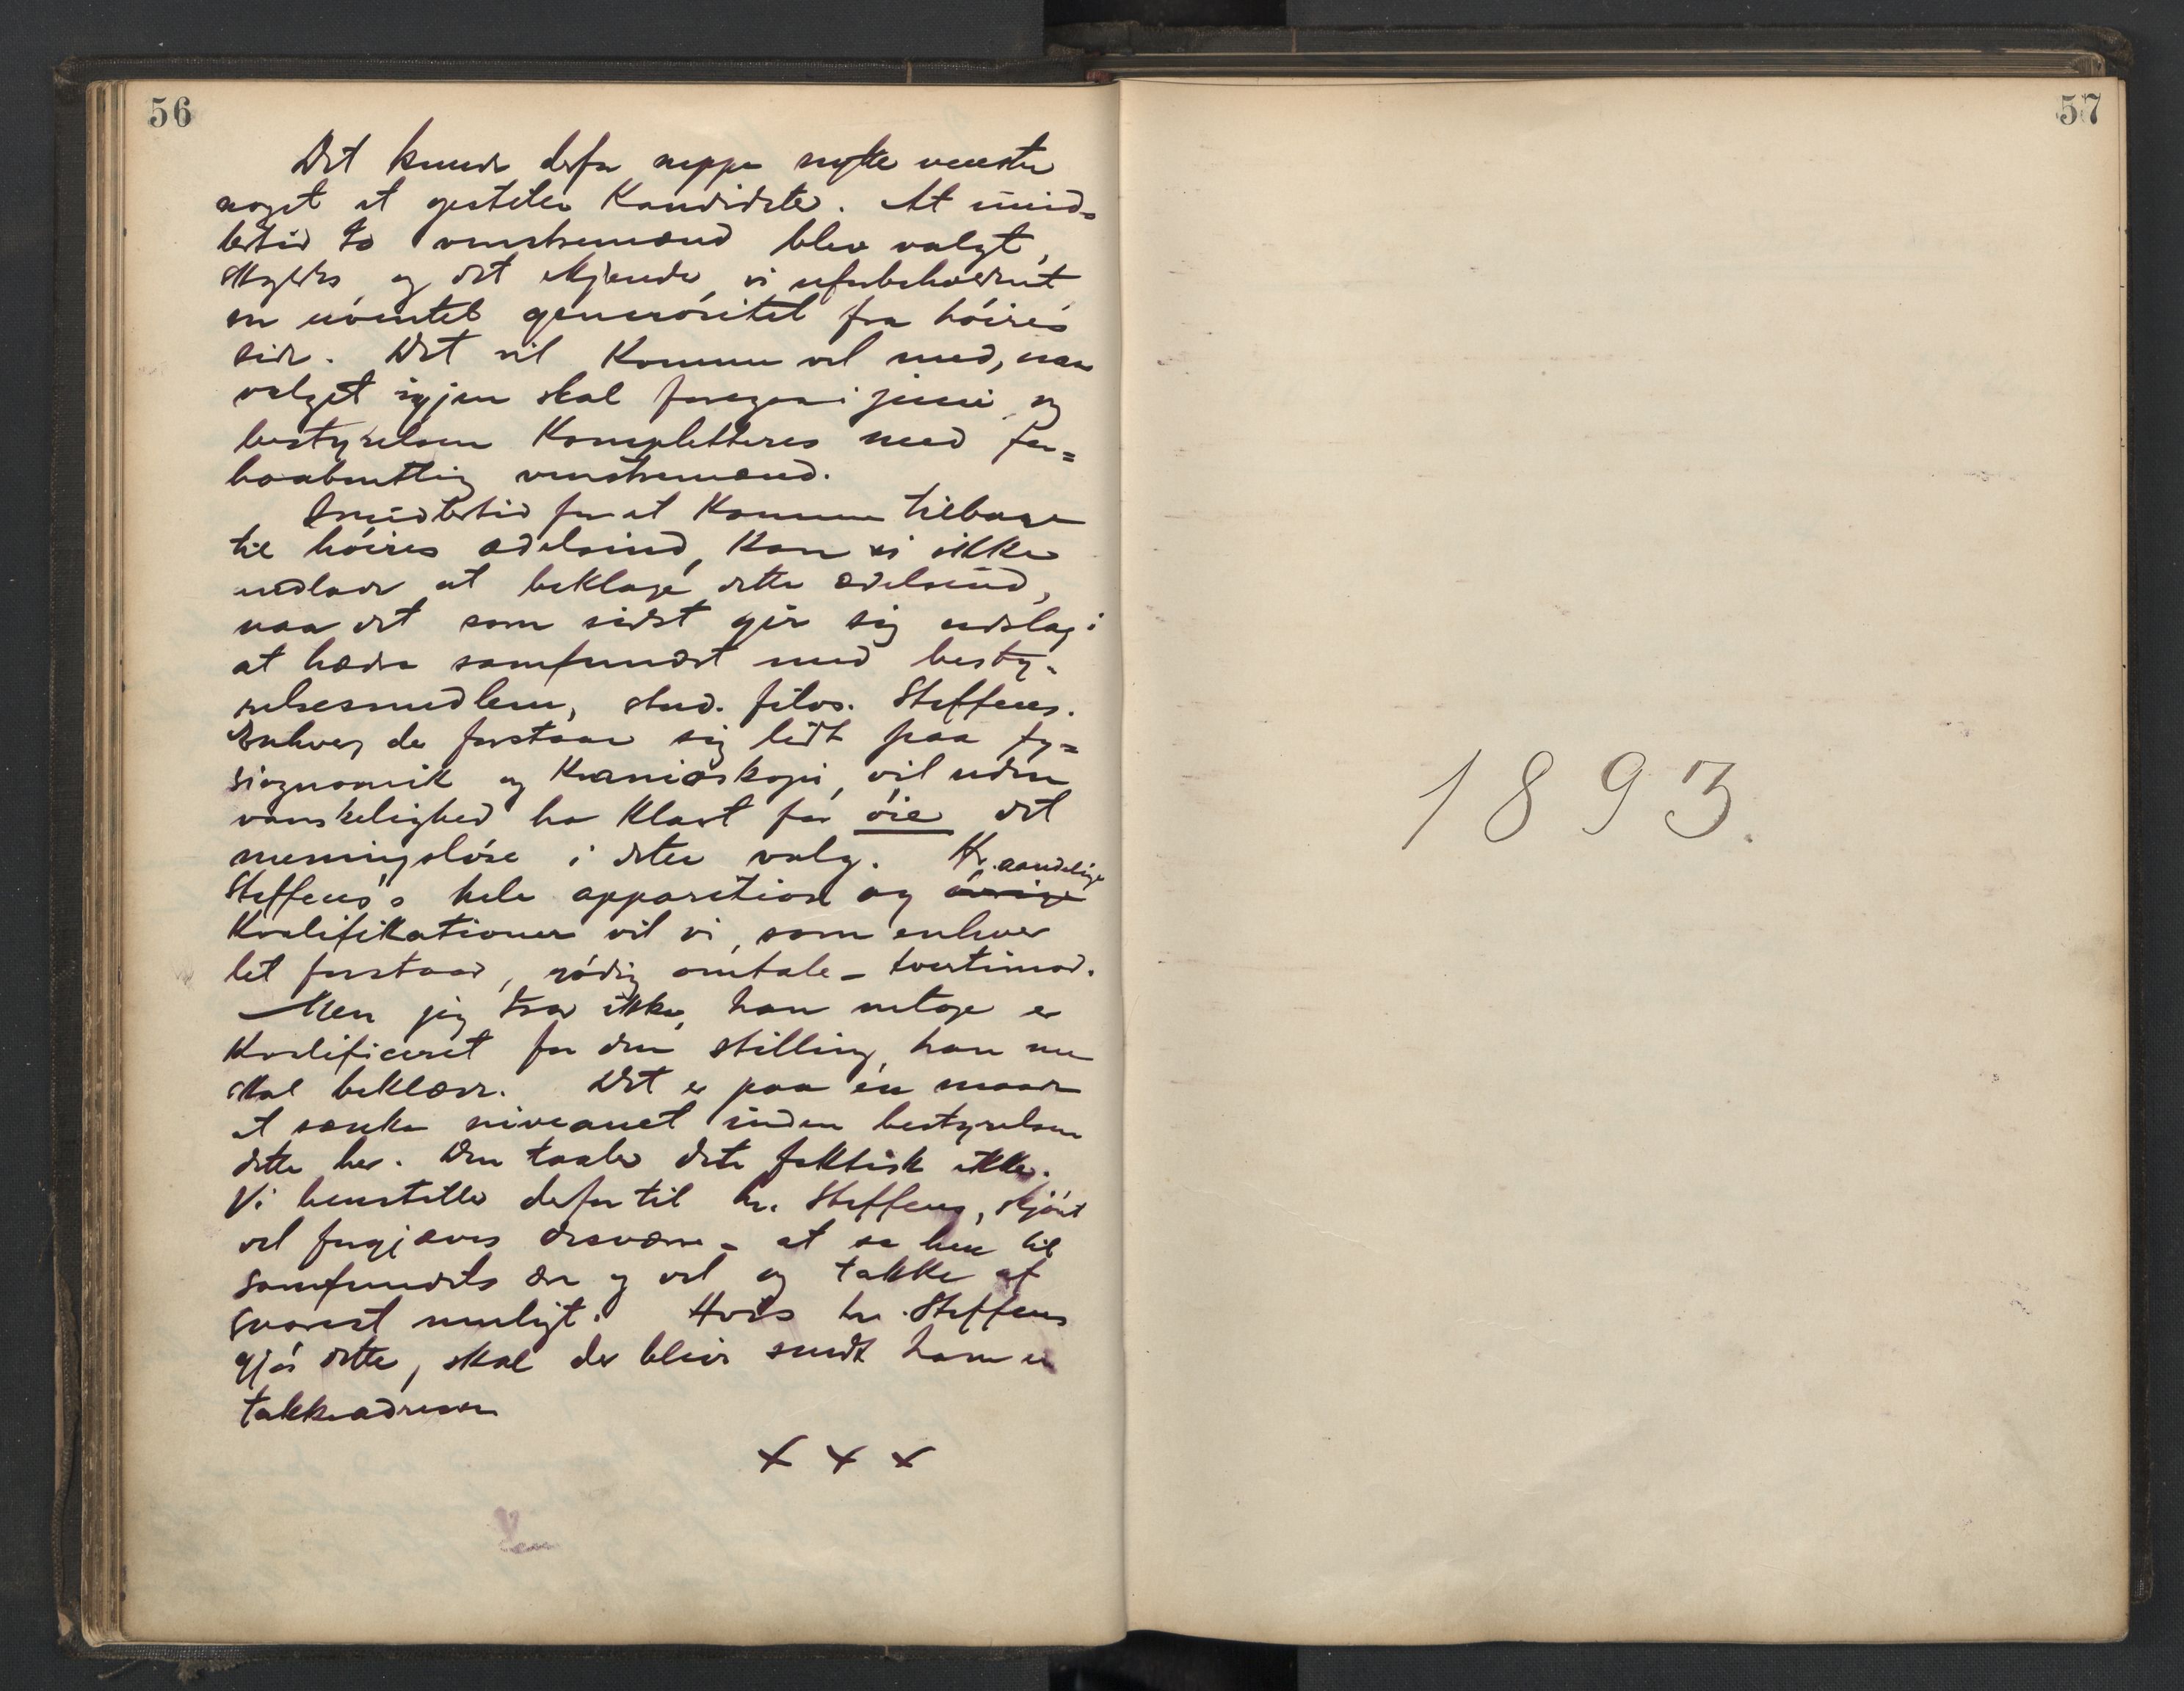 56
Det kunde derfor neppe nytte venstre
noget at opstille Kandidater. At imid=
lertid to venstremænd blev valgt,
skyldes og det erkjender vi uforbeholdent
en uventet generøsitet fra høires
side. Det vil komme vel med, naar
valget igjen skal foregaa i juni og
bestyrelsen Kompletteres med for=
haabentlig venstremænd.
Imidlertid for at komme tilbage
til høires ædelsind, kan vi ikke
undlade at beklage dette ædelsind,
naar det som sidst gir sig udslag i
at hædre samfundet med besty=
relsesmedlem, stud. filos. Steffens.
Enhver, der forstaar sig lidt paa fy=
siognomik og Kranioskopi, vil uden
vanskelighed ha klart for øie det
meningsløse i dette valg. Hr.
Steffens's hele apparition og øvrige aandelige
Kvalifikationer vil vi, som enhver
let forstaar, nødig omtale – tvertimod.
Men jeg tror ikke, han netop er
Kvalificeret for den stilling, han nu
skal beklæde. Det er paa én maade
at sænke niveauet inden bestyrelsen
dette her. Den taaler dette faktisk ikke.
Vi henstiller derfor til hr. Steffens, skjønt
vel forgjæves desværre – at se hen til
samfundets ære og vel og takke af
snarest muligt. Hvis hr. Steffens
gjør dette, skal der blive sendt ham en
takkeadresse
x x x
57
1893.